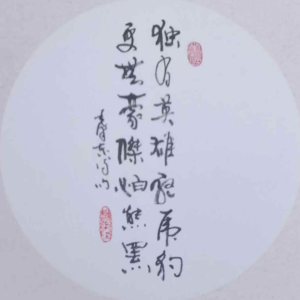 独有英雄驱虎豹
更無豪傑怕熊罴